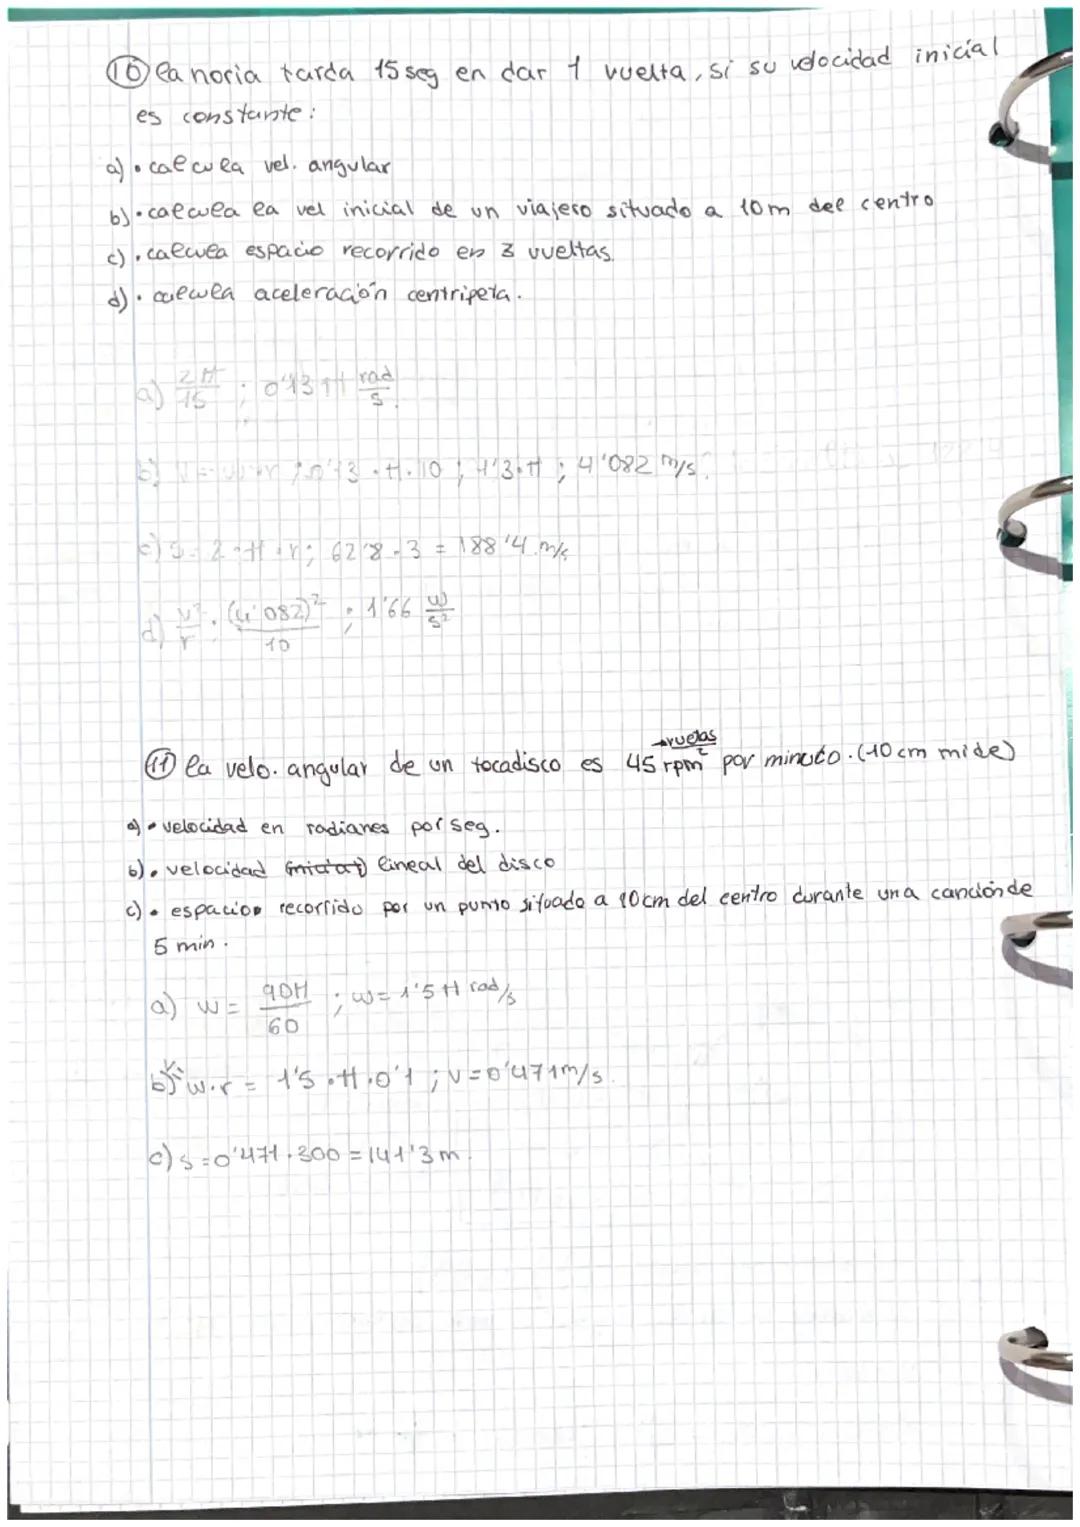 10 la noria tarda 15 seg en dar 1 vuelta, si su velocidad inicial
es constante:
a) • calcula vel. angular
b) • calcula la vel inicial de un viajero situado a 10m del centro
c) • calcula espacio recorrido en 3 vueltas.
d) • calcula aceleración centripeta.
a) 2π/15 ; 0'13 π rad/s.
b) V = w·r ; 0'13 · π · 10 ; 1'3·π ; 4'082 m/s.
c) s = 2·π·r ; 62'8 · 3 = 188'4 m/s
d) v²/r ; (4'082)²/10 ; 1'66 w/s²
→ vueltas
11 la velo. angular de un tocadisco es 45 rpm² por minuto. (10 cm mide)
a) • velocidad en radianes por seg.
b) • velocidad (inicial) lineal del disco
c) • espacio recorrido por un punto situado a 10cm del centro durante una canción de
5 min.
a) w = 90π/60 ; w = 1'5 π rad/s
b) V = w·r = 1'5 · π · 0'1 ; v = 0'471 m/s.
c) s = 0'471 · 300 = 141'3 m.